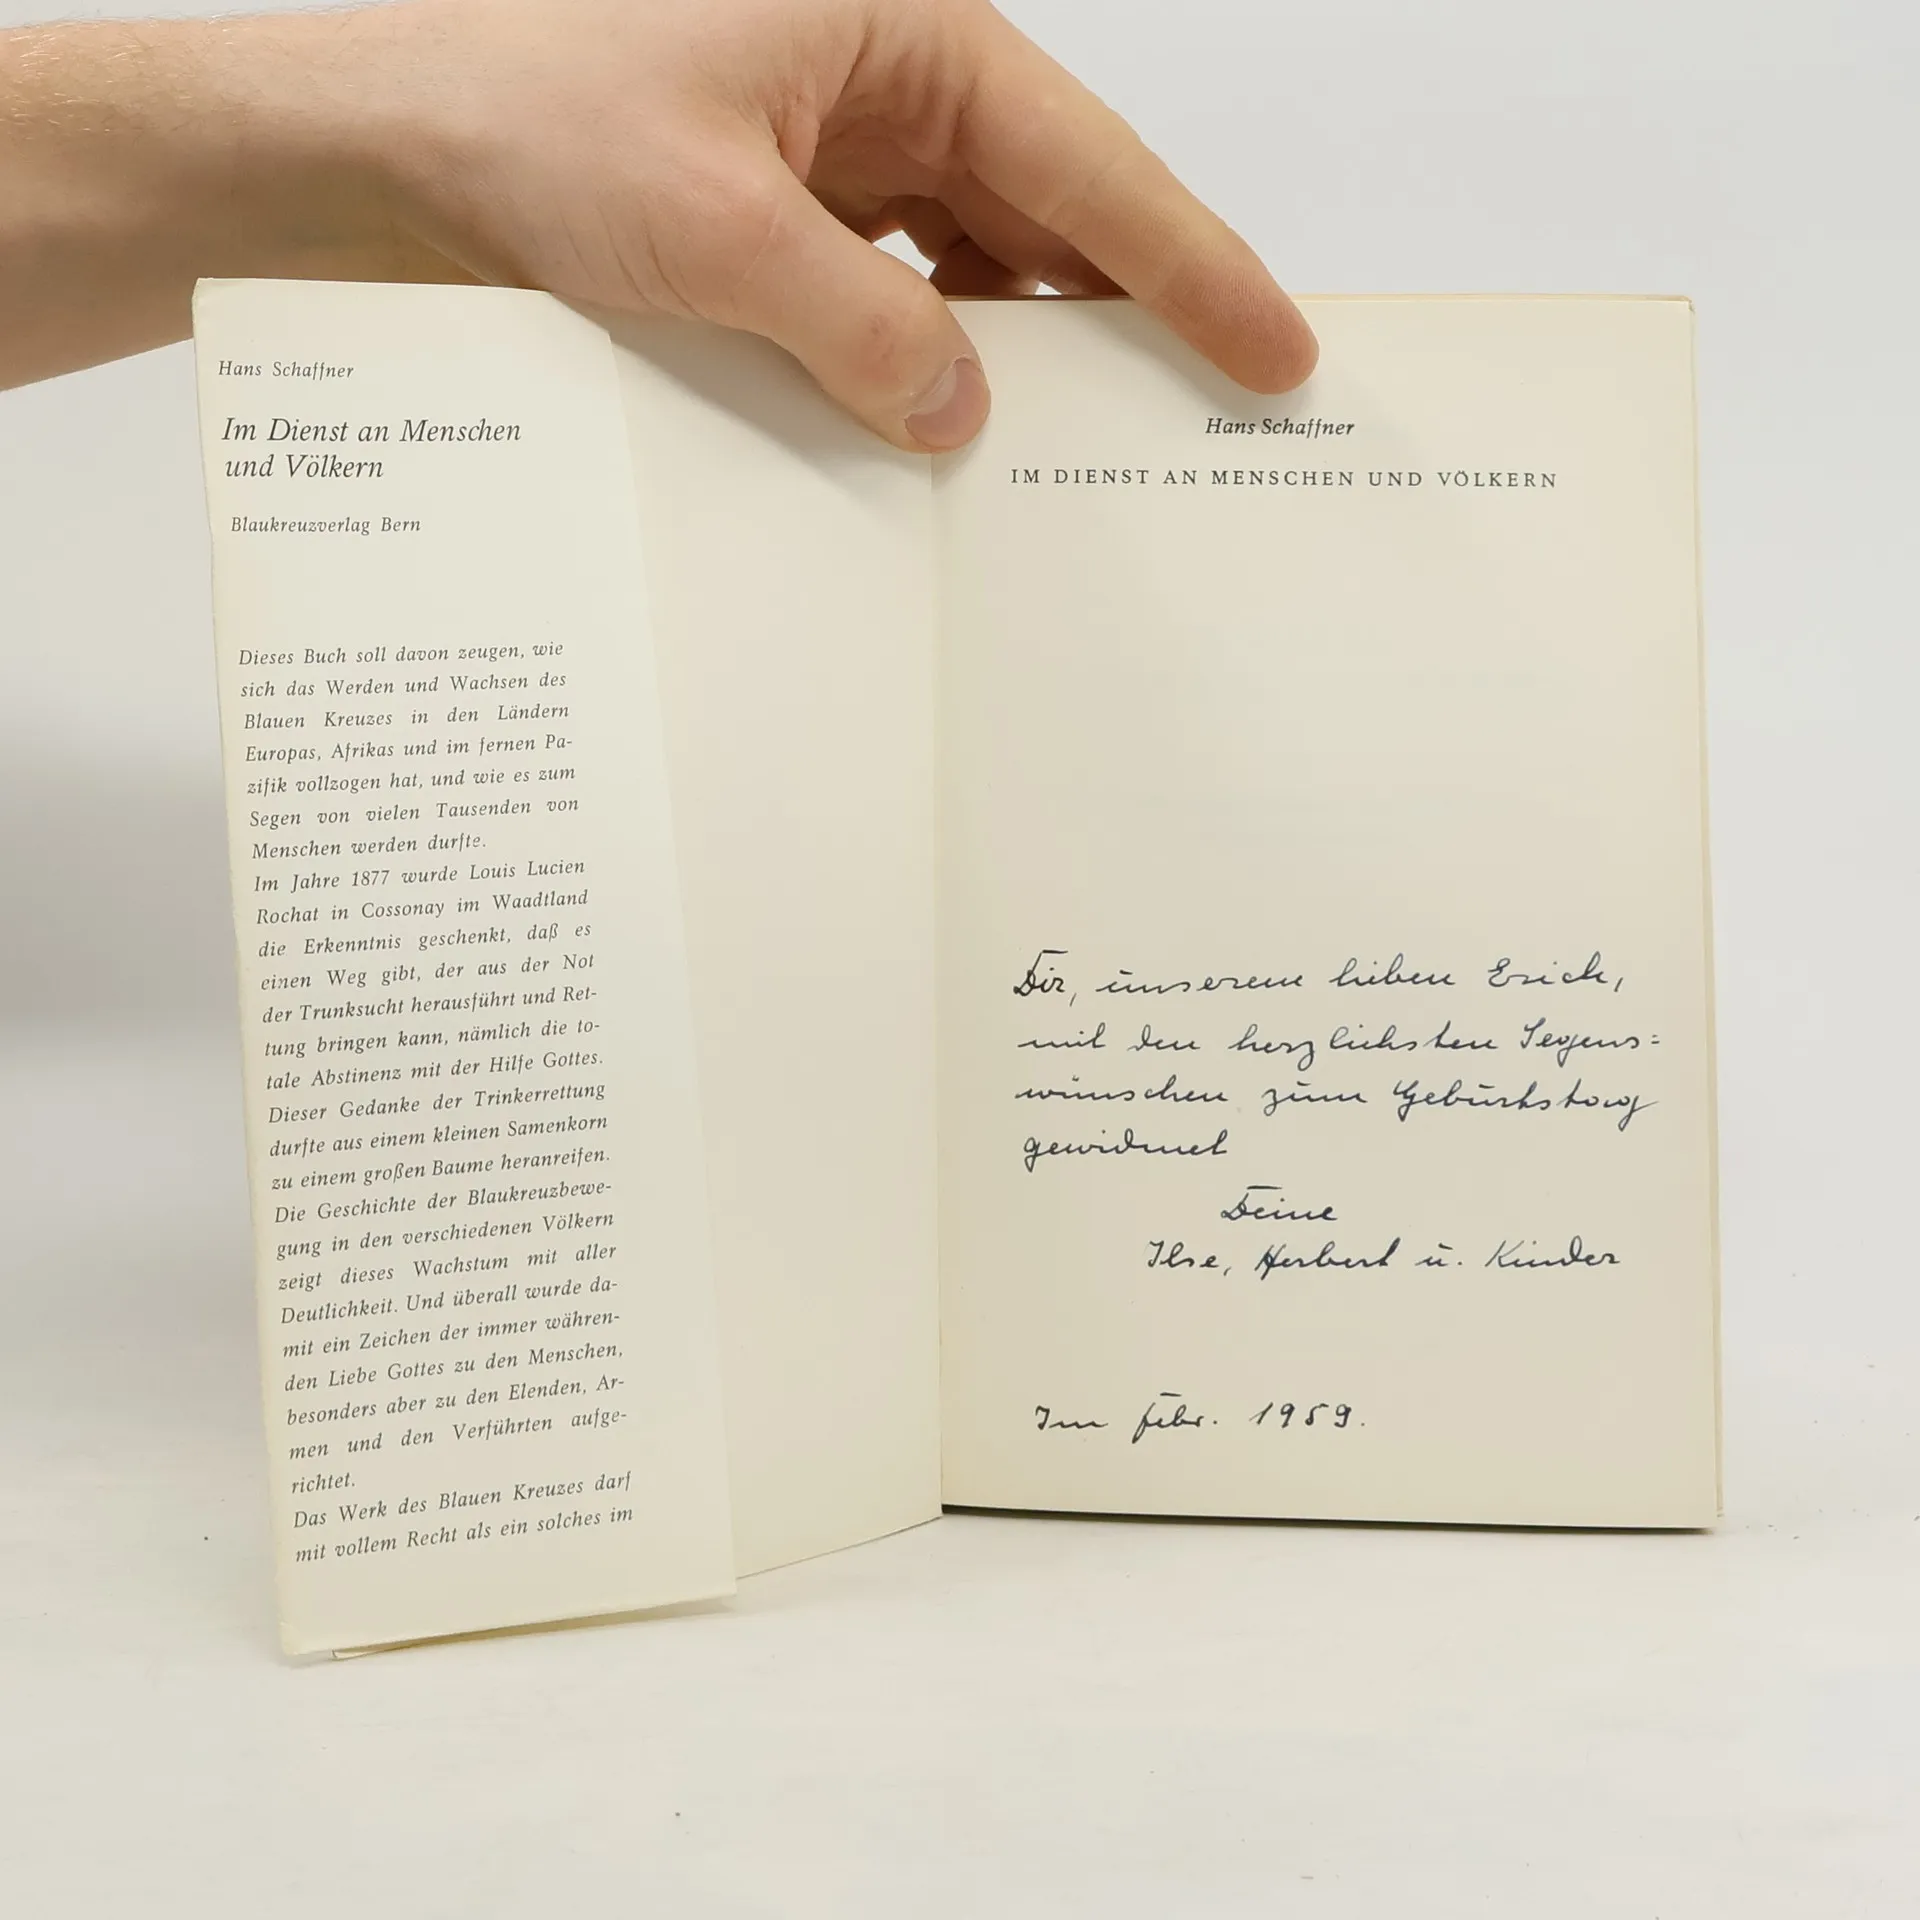 Hans Schaffner
Im Dienst an Menschen
und Völkern
Blaukreuzverlag Bern
Dieses Buch soll davon zeugen, wie
sich das Werden und Wachsen des
Blauen Kreuzes in den Ländern
Europas, Afrikas und im fernen Pa-
zifik vollzogen hat, und wie es zum
Segen von vielen Tausenden von
Menschen werden durfte.
Im Jahre 1877 wurde Louis Lucien
Rochat in Cossonay im Waadtland
die Erkenntnis geschenkt, daß es
einen Weg gibt, der aus der Not
der Trunksucht herausführt und Ret-
tung bringen kann, nämlich die to-
tale Abstinenz mit der Hilfe Gottes.
Dieser Gedanke der Trinkerrettung
durfte aus einem kleinen Samenkorn
zu einem großen Baume heranreifen.
Die Geschichte der Blaukreuzbewe-
gung in den verschiedenen Völkern
zeigt dieses Wachstum mit aller
Deutlichkeit. Und überall wurde da-
mit ein Zeichen der immer währen-
den Liebe Gottes zu den Menschen,
besonders aber zu den Elenden, Ar-
men und den Verführten aufge-
richtet.
Das Werk des Blauen Kreuzes darf
mit vollem Recht als ein solches im
Hans Schaffner
IM DIENST AN MENSCHEN UND VÖLKERN
Dir, unserem lieben Erich,
mit den herzlichsten Segens=
wünschen zum Geburtstag
gewidmet
Deine
Ilse, Herbert u. Kinder
Im Febr. 1959.